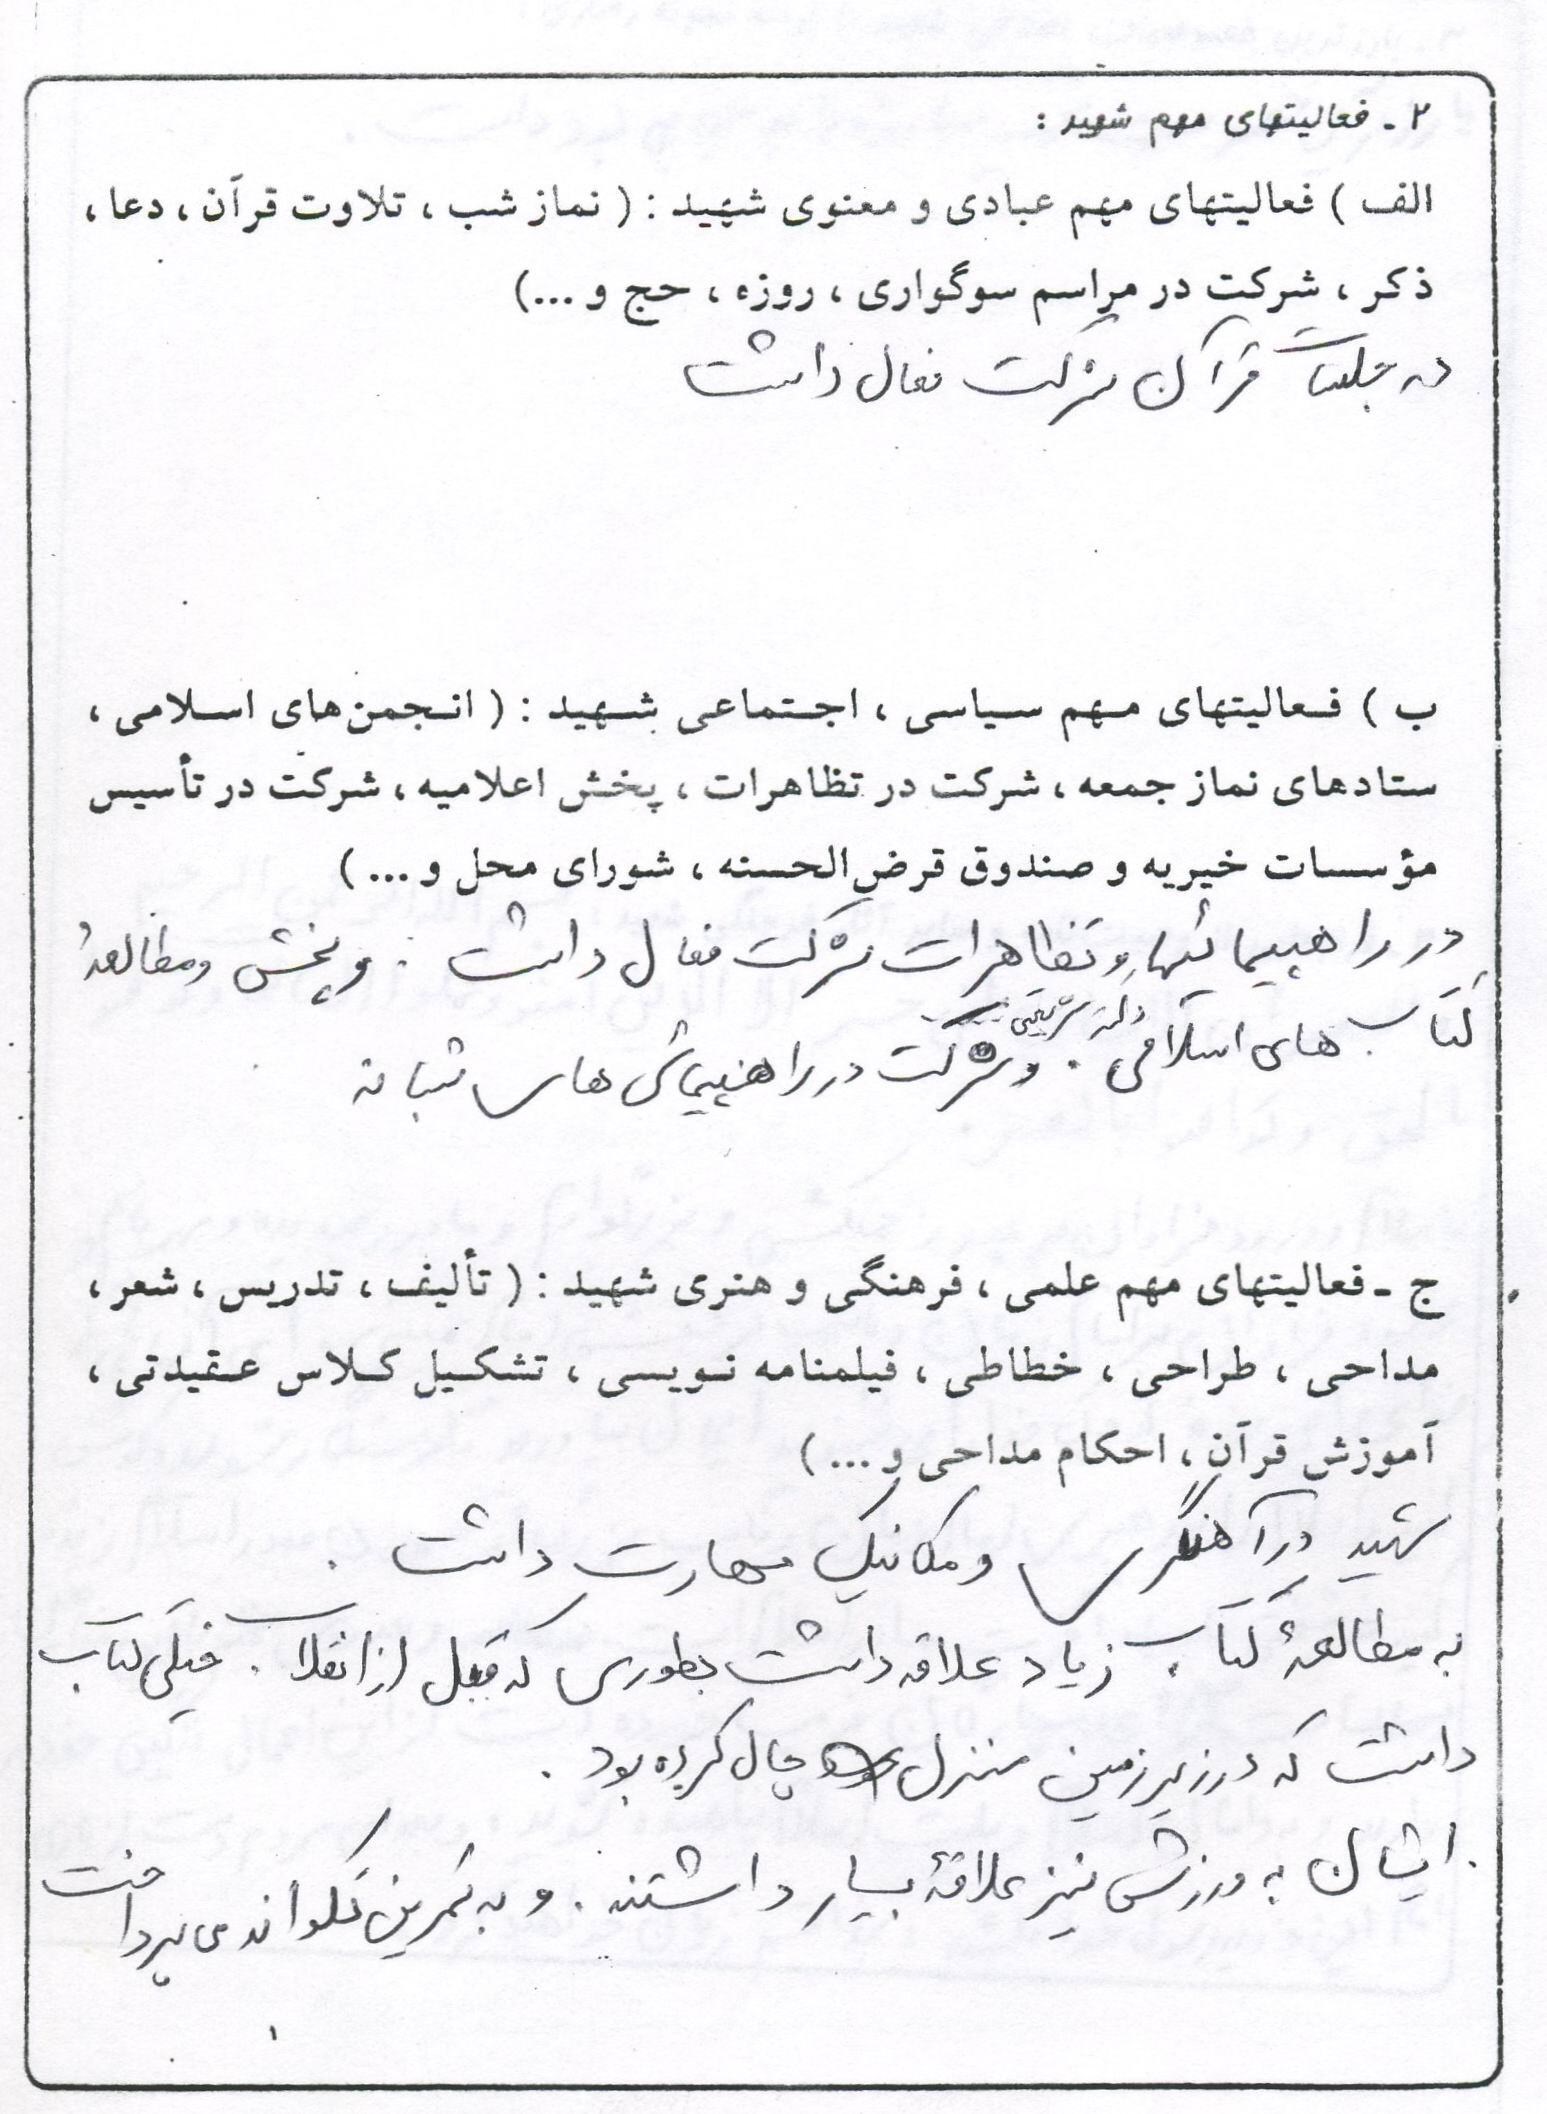 ۲ ـ فعالیتهای مهم شهید :
الف ) فعالیتهای مهم عبادی و معنوی شهید : ( نماز شب ، تلاوت قرآن ، دعا ،
ذکر ، شرکت در مراسم سوگواری ، روزه ، حج و ...)
در جلسات قرآن شرکت فعال داشت
ب ) فعالیتهای مهم سیاسی ، اجتماعی شهید : ( انجمن‌های اسلامی ،
ستادهای نماز جمعه ، شرکت در تظاهرات ، پخش اعلامیه ، شرکت در تأسیس
مؤسسات خیریه و صندوق قرض‌الحسنه ، شورای محل و ... )
در راهپیمائیها و تظاهرات شرکت فعال داشت . و پخش و مطالعهٔ
کتاب های اسلامی دکتر شریعتی . و شرکت در راهپیمائی های شبانه
ج ـ فعالیتهای مهم علمی ، فرهنگی و هنری شهید : ( تألیف ، تدریس ، شعر ،
مداحی ، طراحی ، خطاطی ، فیلمنامه نویسی ، تشکیل کلاس عقیدتی ،
آموزش قرآن ، احکام مداحی و ... )
شهید در آهنگری و مکانیک مهارت داشت .
به مطالعهٔ کتاب زیاد علاقه داشت بطوری که قبل از انقلاب . خیلی کتاب
داشت که در زیرزمین منزل چال کرده بود .
. ایشان به ورزش نیز علاقهٔ بسیار داشتند . و به تمرین تکواندو می پرداخت
۱